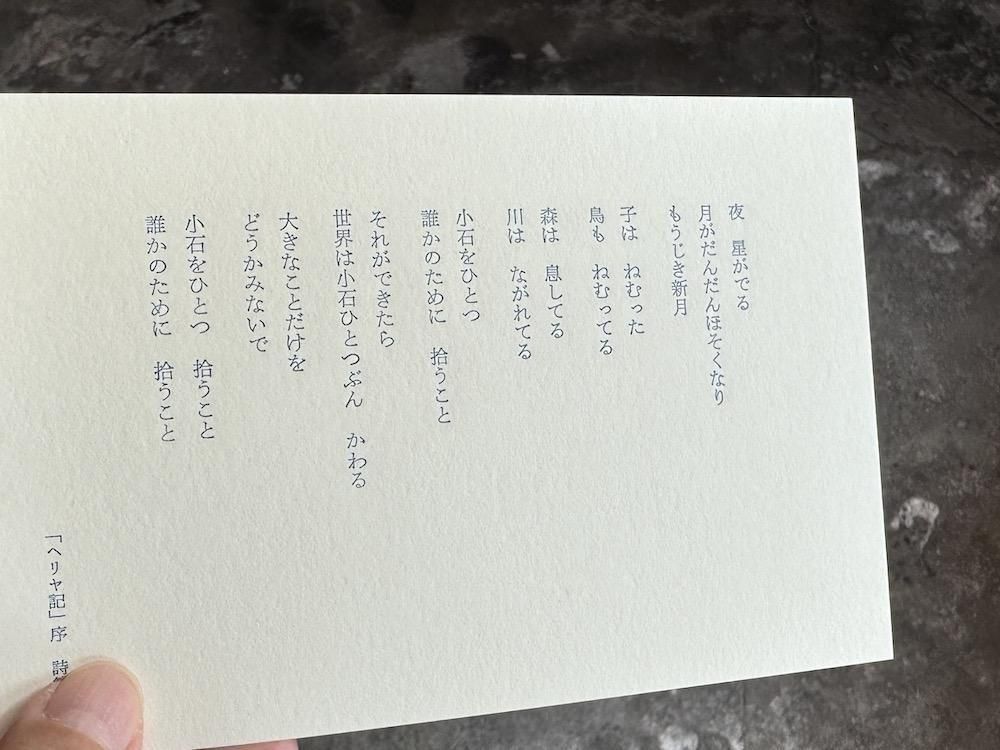 夜　星がでる
月がだんだんほそくなり
もうじき新月
子は　ねむった
鳥も　ねむってる
森は　息してる
川は　ながれてる
小石をひとつ
誰かのために　拾うこと
それができたら
世界は小石ひとつぶん　かわる
大きなことだけを
どうかみないで
小石をひとつ　拾うこと
誰かのために　拾うこと
「ヘリヤ記」序　詩